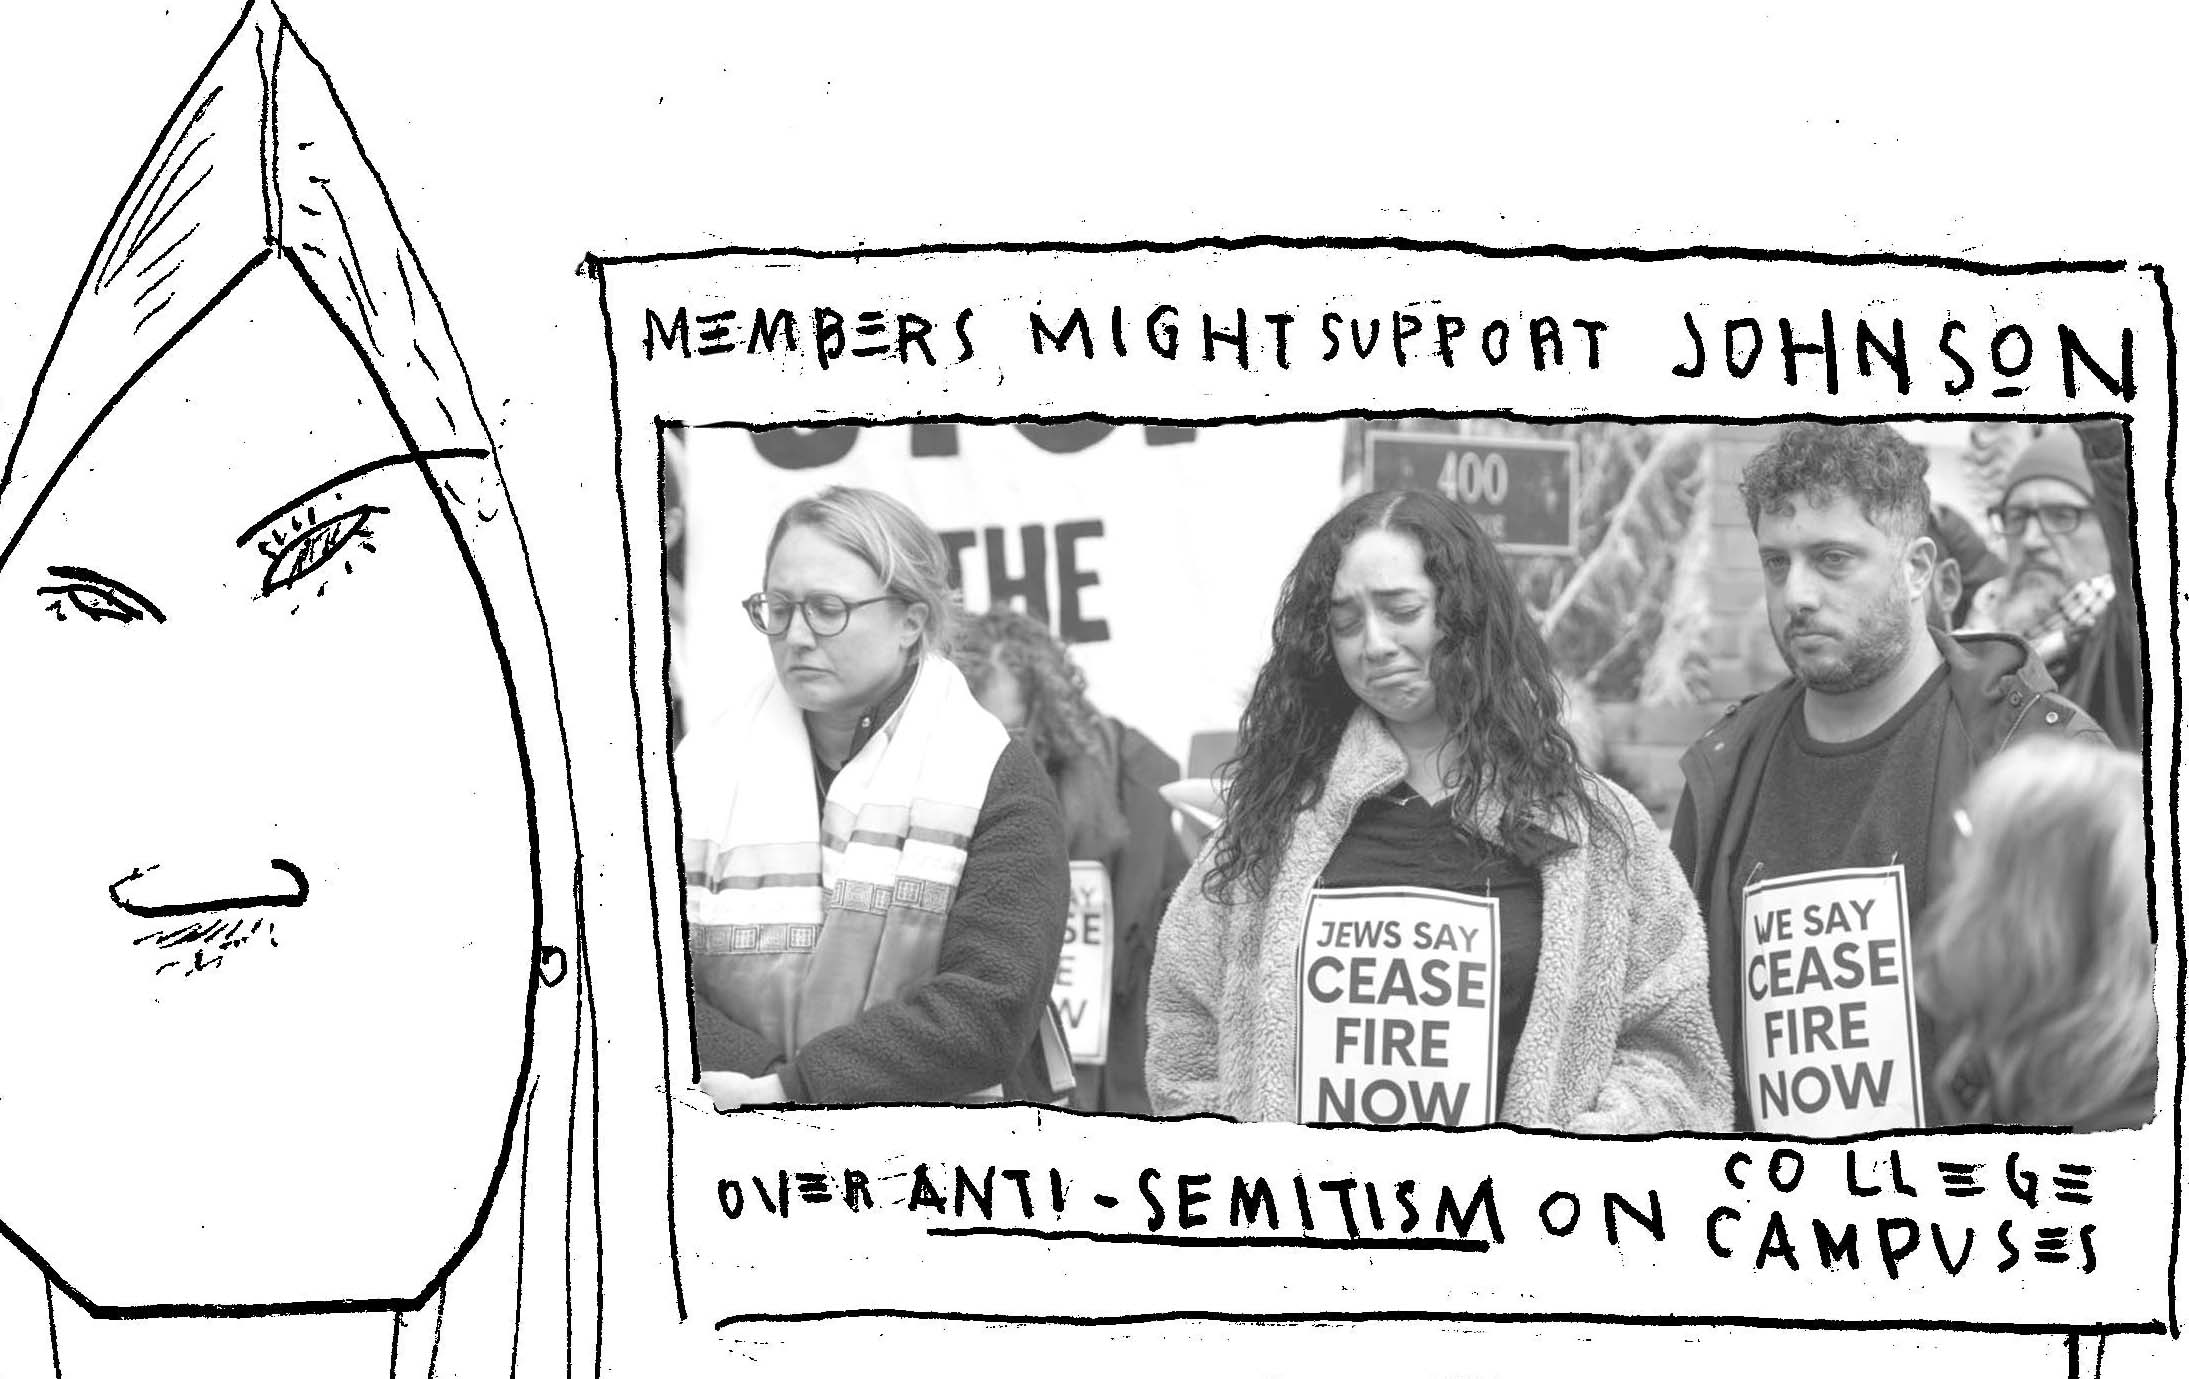 MEMBERS MIGHT SUPPORT JOHNSON
THE
400
JEWS SAY
CEASE
FIRE
NOW
WE SAY
CEASE
FIRE
NOW
OVER ANTI-SEMITISM ON COLLEGE
CAMPUSES